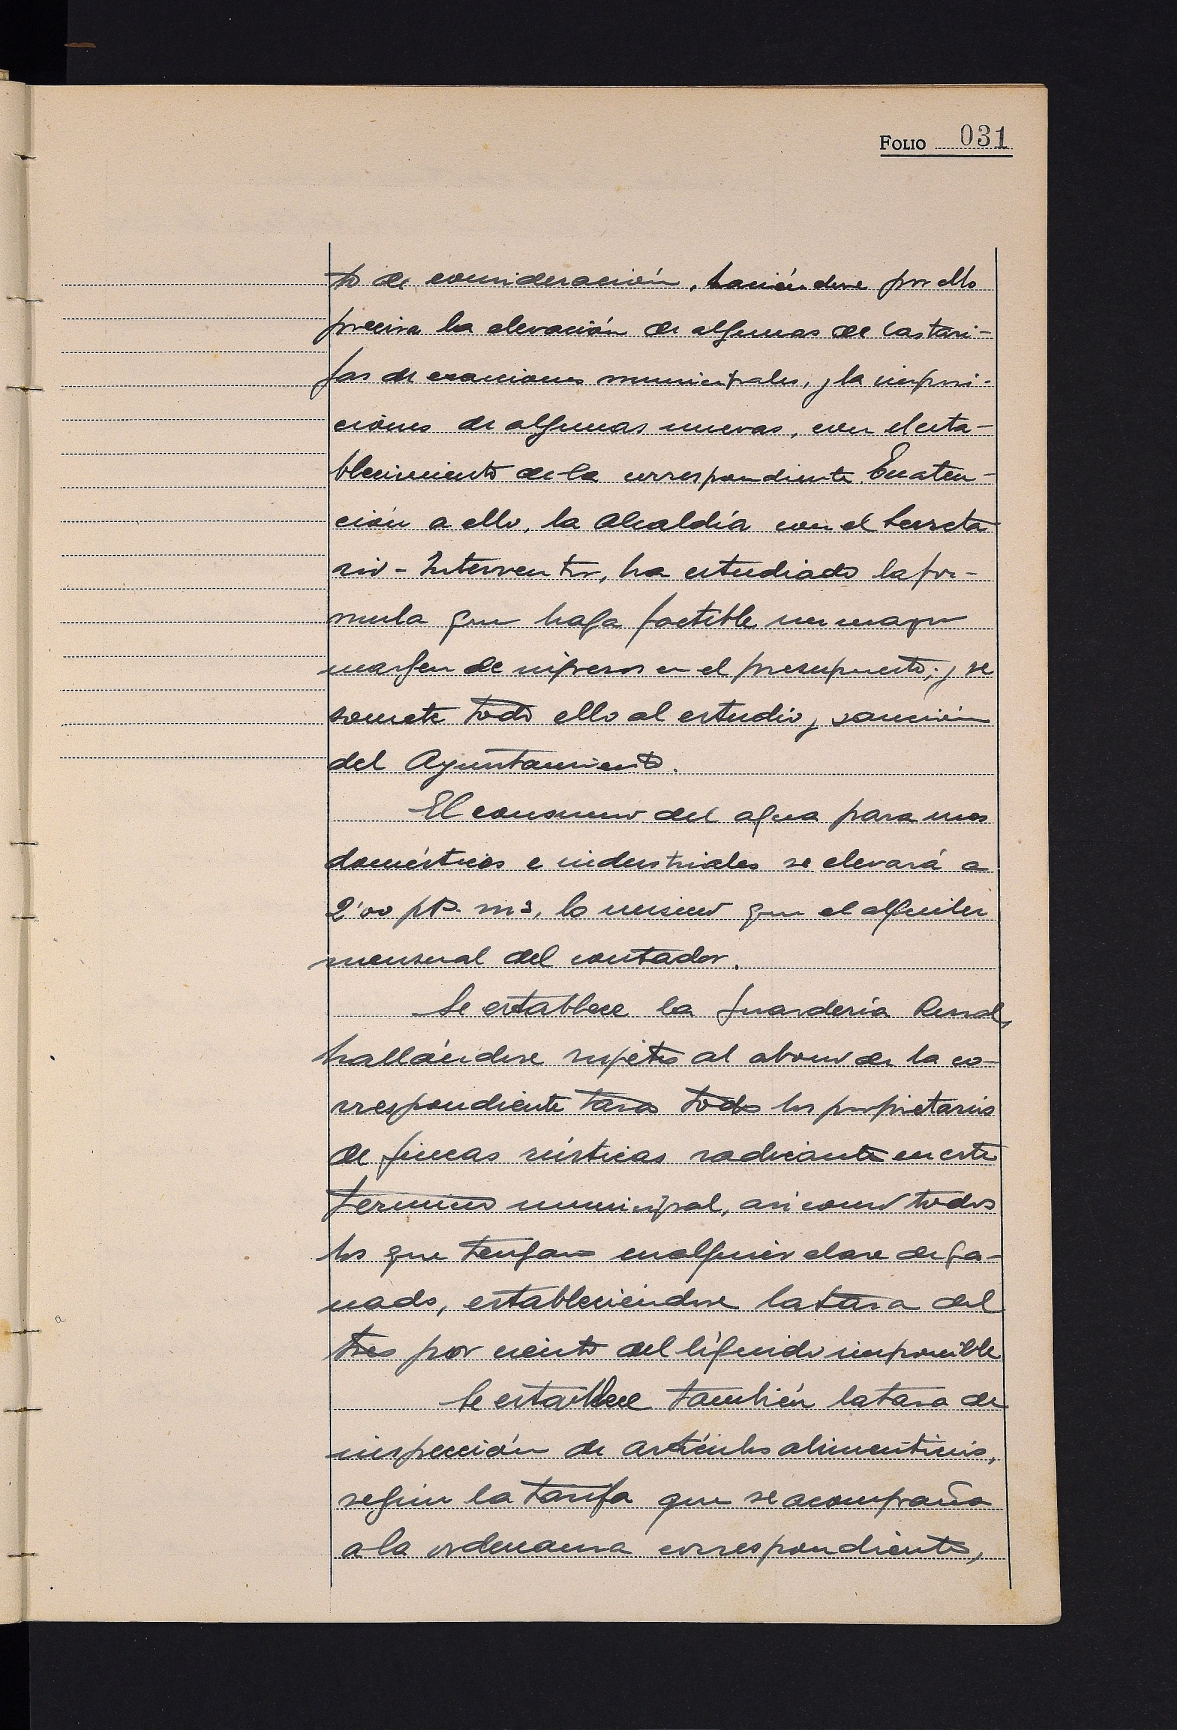 FOLIO 031
to de consideración, haciéndose por ello
precisa la elevación de algunas de las tari-
fas de exacciones municipales, y la imposi-
ciones de algunas nuevas, con el esta-
blecimiento de la correspondiente. En aten-
ción a ello, la Alcaldía con el Secreta
rio-Interventor, ha estudiado la for-
mula que haga factible un mayor
margen de ingresos en el presupuesto; y se
somete todo ello al estudio y sanción
del Ayuntamiento.
El consumo del agua para usos
domésticos e industriales se elevará a
2'00 pts. m3, lo mismo que el alquiler
mensual del contador.
Se establece la Guardería Rural,
hallándose sujetos al abono de la co-
rrespondiente tasa todos los propietarios
de fincas rústicas radicante en este
término municipal, asi como todos
los que tengan cualquier clase de ga-
nado, estableciendose la tasa del
tres por ciento del líquido imponible
Se establece también la tasa de
inspección de artículos alimenticios,
según la tarifa que se acompaña
a la ordenanza correspondiente,